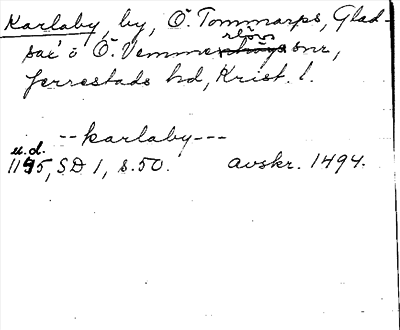 Karlaby, by, Ö. Tommarps, Glad-
sax o Ö. Vemmerlövs snr,
Jerrestads hd, Krist. l.
--karlaby---
u.d.
1145, SD 1, s. 50. avskr. 1494.